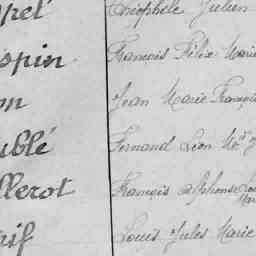 pel Théophile Julien
spin François Félix Marie
on Jean Marie François
ublé Fernand Léon M
llerot François Alphonse
aif Louis Jules Marie